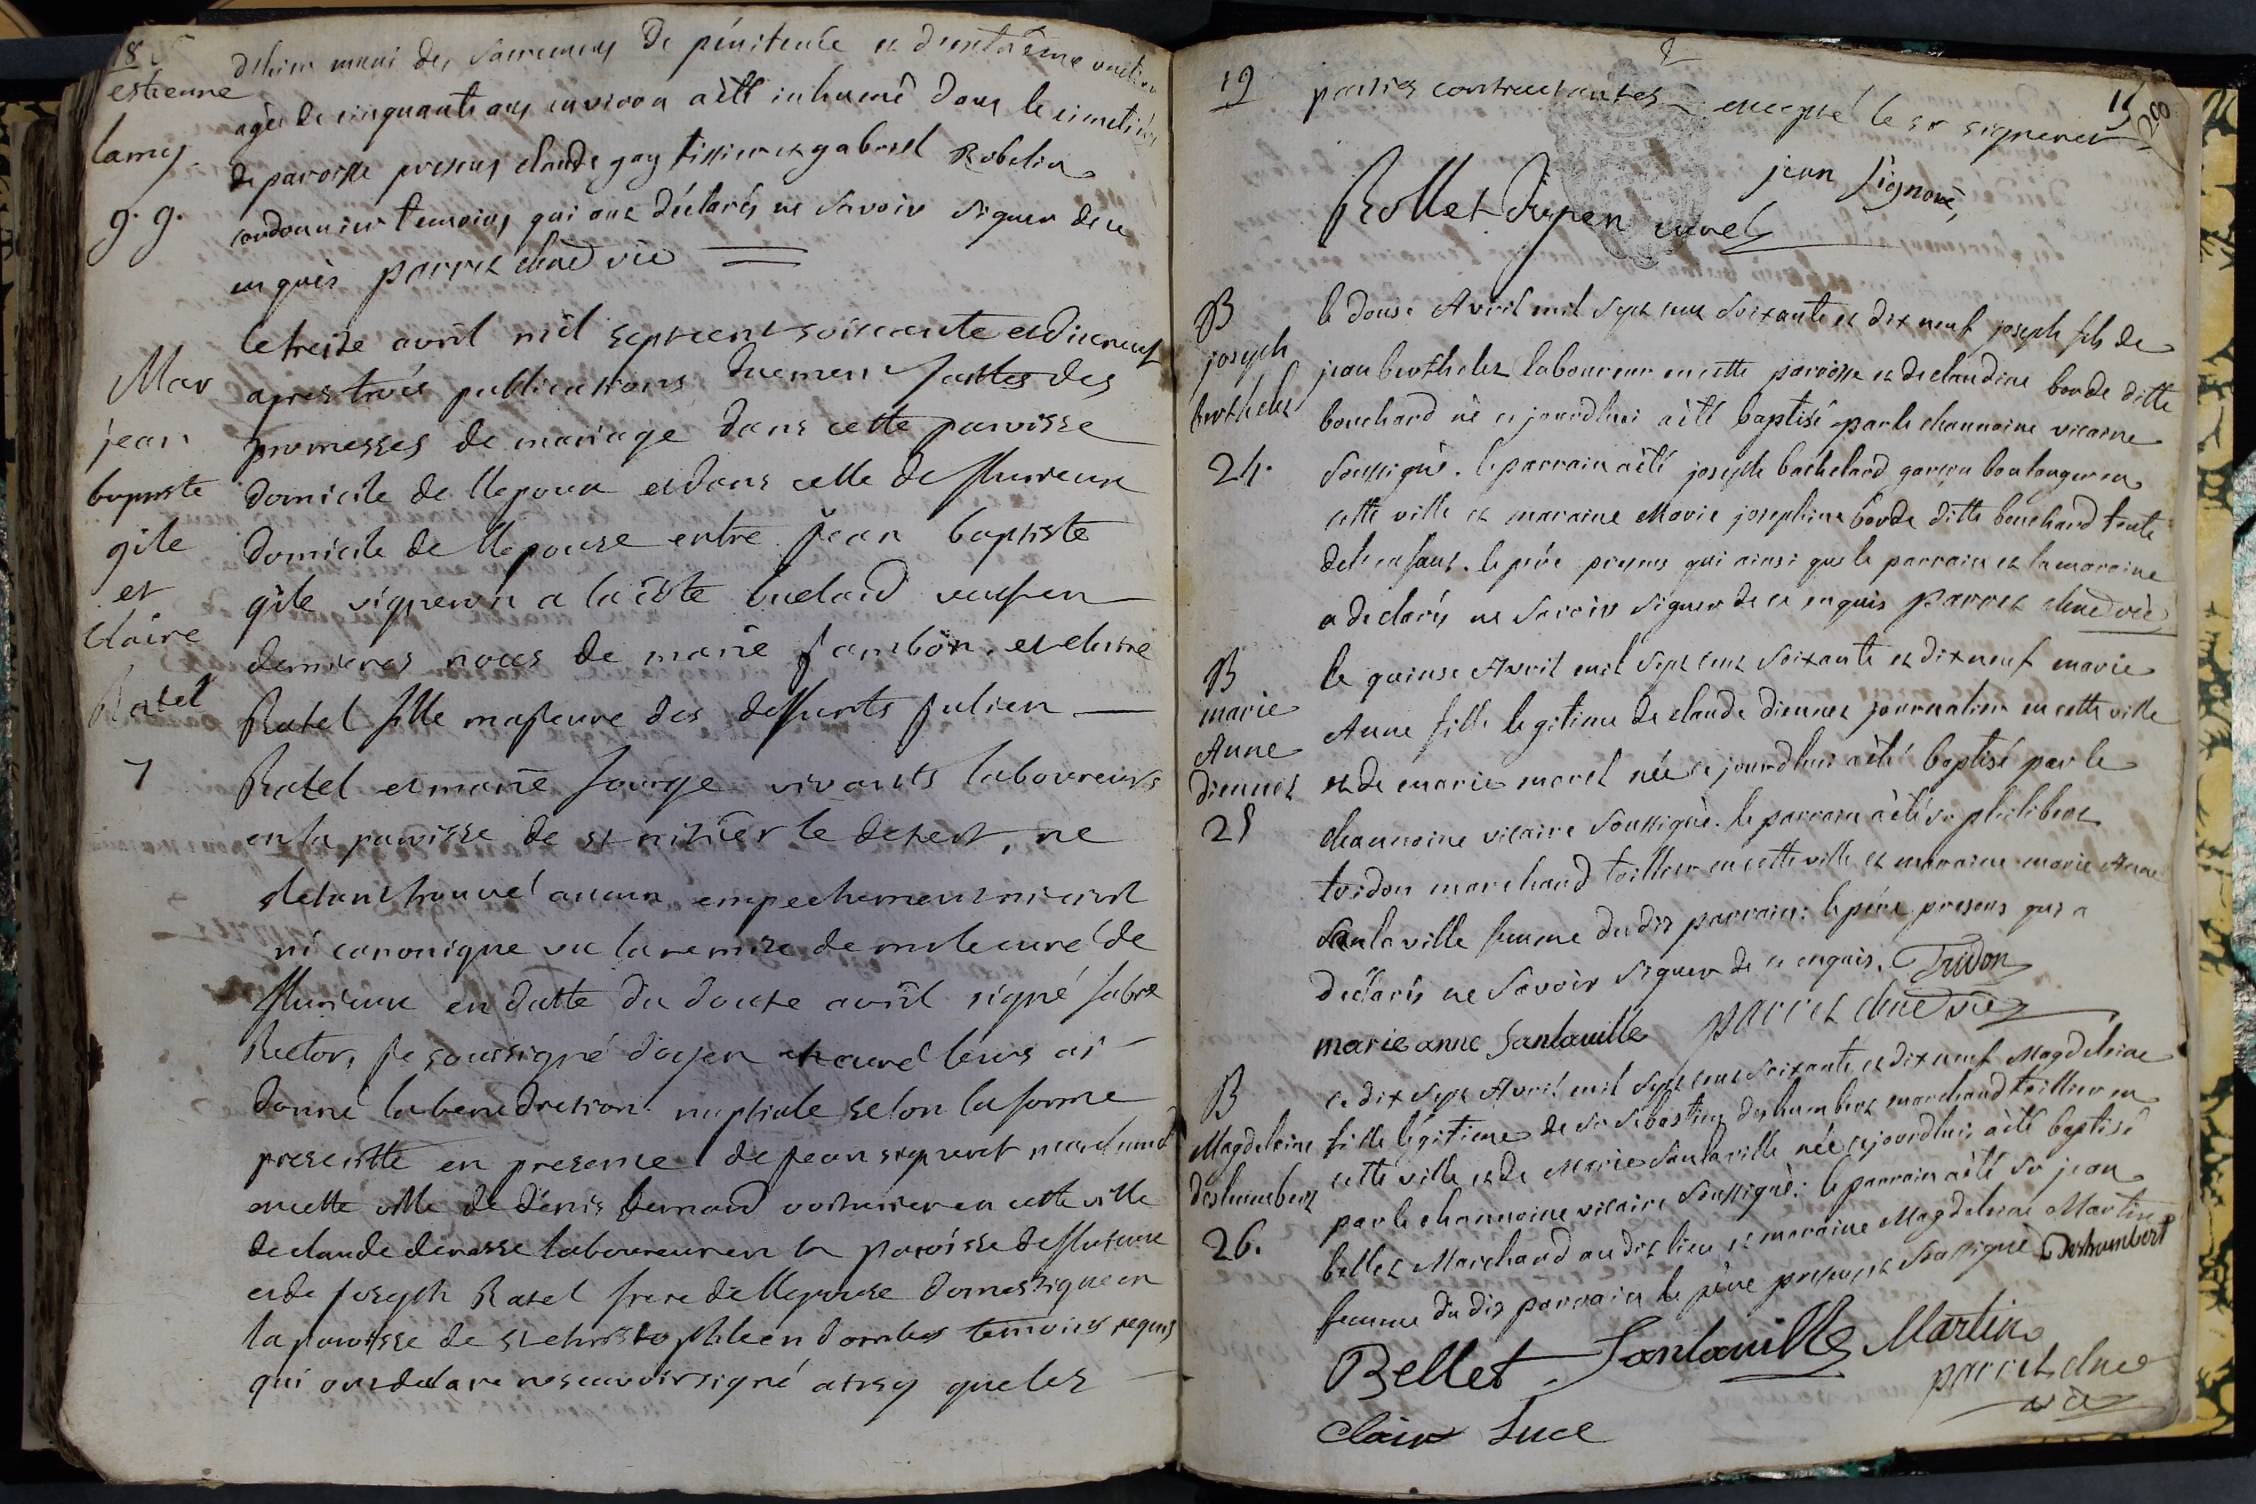 18
estienne
lamy
g. g.
d'hier muni des sacremens de pénitence et d'extrême onction
agée de cinquante ans environ a été inhumé dans le cimetière
de paroisse presens claude gay tissier et gabriel Robelin
cordonnier temoins qui ont déclarés ne savoir signer de ce
enquis parret chne vic
Mar
jean
baptiste
gile
et
Claire
Ratel
7
le treize avril mil septcent soixante et dixneuf
apres trois publications duement faittes des
promesses de mariage dans cette paroisse
domicile de llepoux et dans celle de flurieux
domicile de llepouse entre jean baptiste
gile vigneron a la côte veuf en
dernieres noces de marie jambon, et claire
Ratel fille majeure des deffunts julien
Ratel et marie vivants laboureurs
en la paroisse de st nizier le desert, ne
sletant trouvé aucun empechement ni civil
ni canonique vu la remise de mr le curé de
flurieux en datte du douze avril signé fabre
Rector, je soussigné doyen curé leurs ai
donné la benediction nuptiale selon la forme
prescritte en presence de jean signeret marchand
en cette ville de denis bernard voiturier en cette ville
de claude laboureur en la paroisse de flurieux
et de joseph Ratel frere de llepouse domestique en
la paroisse de st christophle en dombes temoins requis
qui ont declare ne scavoir signé ainsy que les
19
parties contractantes excepté le sr signeret
15
200
jean signoret
Rollet doyen curé
B
joseph
berthelet
24.
le douse Avril mil sept cent soixante et dix neuf joseph fils de
jean berthelet laboureur en cette paroisse et de claudine borde ditte
bouchard né ce jourdhui a été baptisé par le channoine vicaire
soussigné. le parrain a été joseph bachelard garçon boulanger en
cette ville et maraine Marie josephine borde ditte bouchard tente
de l'enfant. le père present qui ainsi que le parrain et la maraine
a declarés ne savoir signer de ce enquis parret chne vic
B
marie
Anne
diennet
25
le quinse Avril mil sept cent soixante et dixneuf marie
Anne fille legitime de claude diennet journalier en cette ville
et de marie morel née ce jourdhui a été baptisé par le
channoine vicaire soussigné. le parrain a été sr philibert
tridon marchand toillier en cette ville et maraine marie Anne
Sanlaville femme du dit parrain: le père present qui a
déclarés ne savoir signer de ce enquis. Tridon
marie anne Sanlaville parret chne vic
B
Magdeleine
deshumbert
26.
le dix sept Avril mil sept cent soixante et dix neuf Magdeleine
fille légitime de sr sébastien deshumbert marchand toillier en
cette ville et de Marie Sanlaville née ce jourdhui a été baptisé
par le channoine vicaire soussigné: le parrain a été sr jean
bellet Marchand au dit lieu et maraine Magdeleine Martin
femme du dit parrain le père present et soussigné Deshumbert
Bellet. Sanlaville Martin
parret chne
vic
Clair Luce